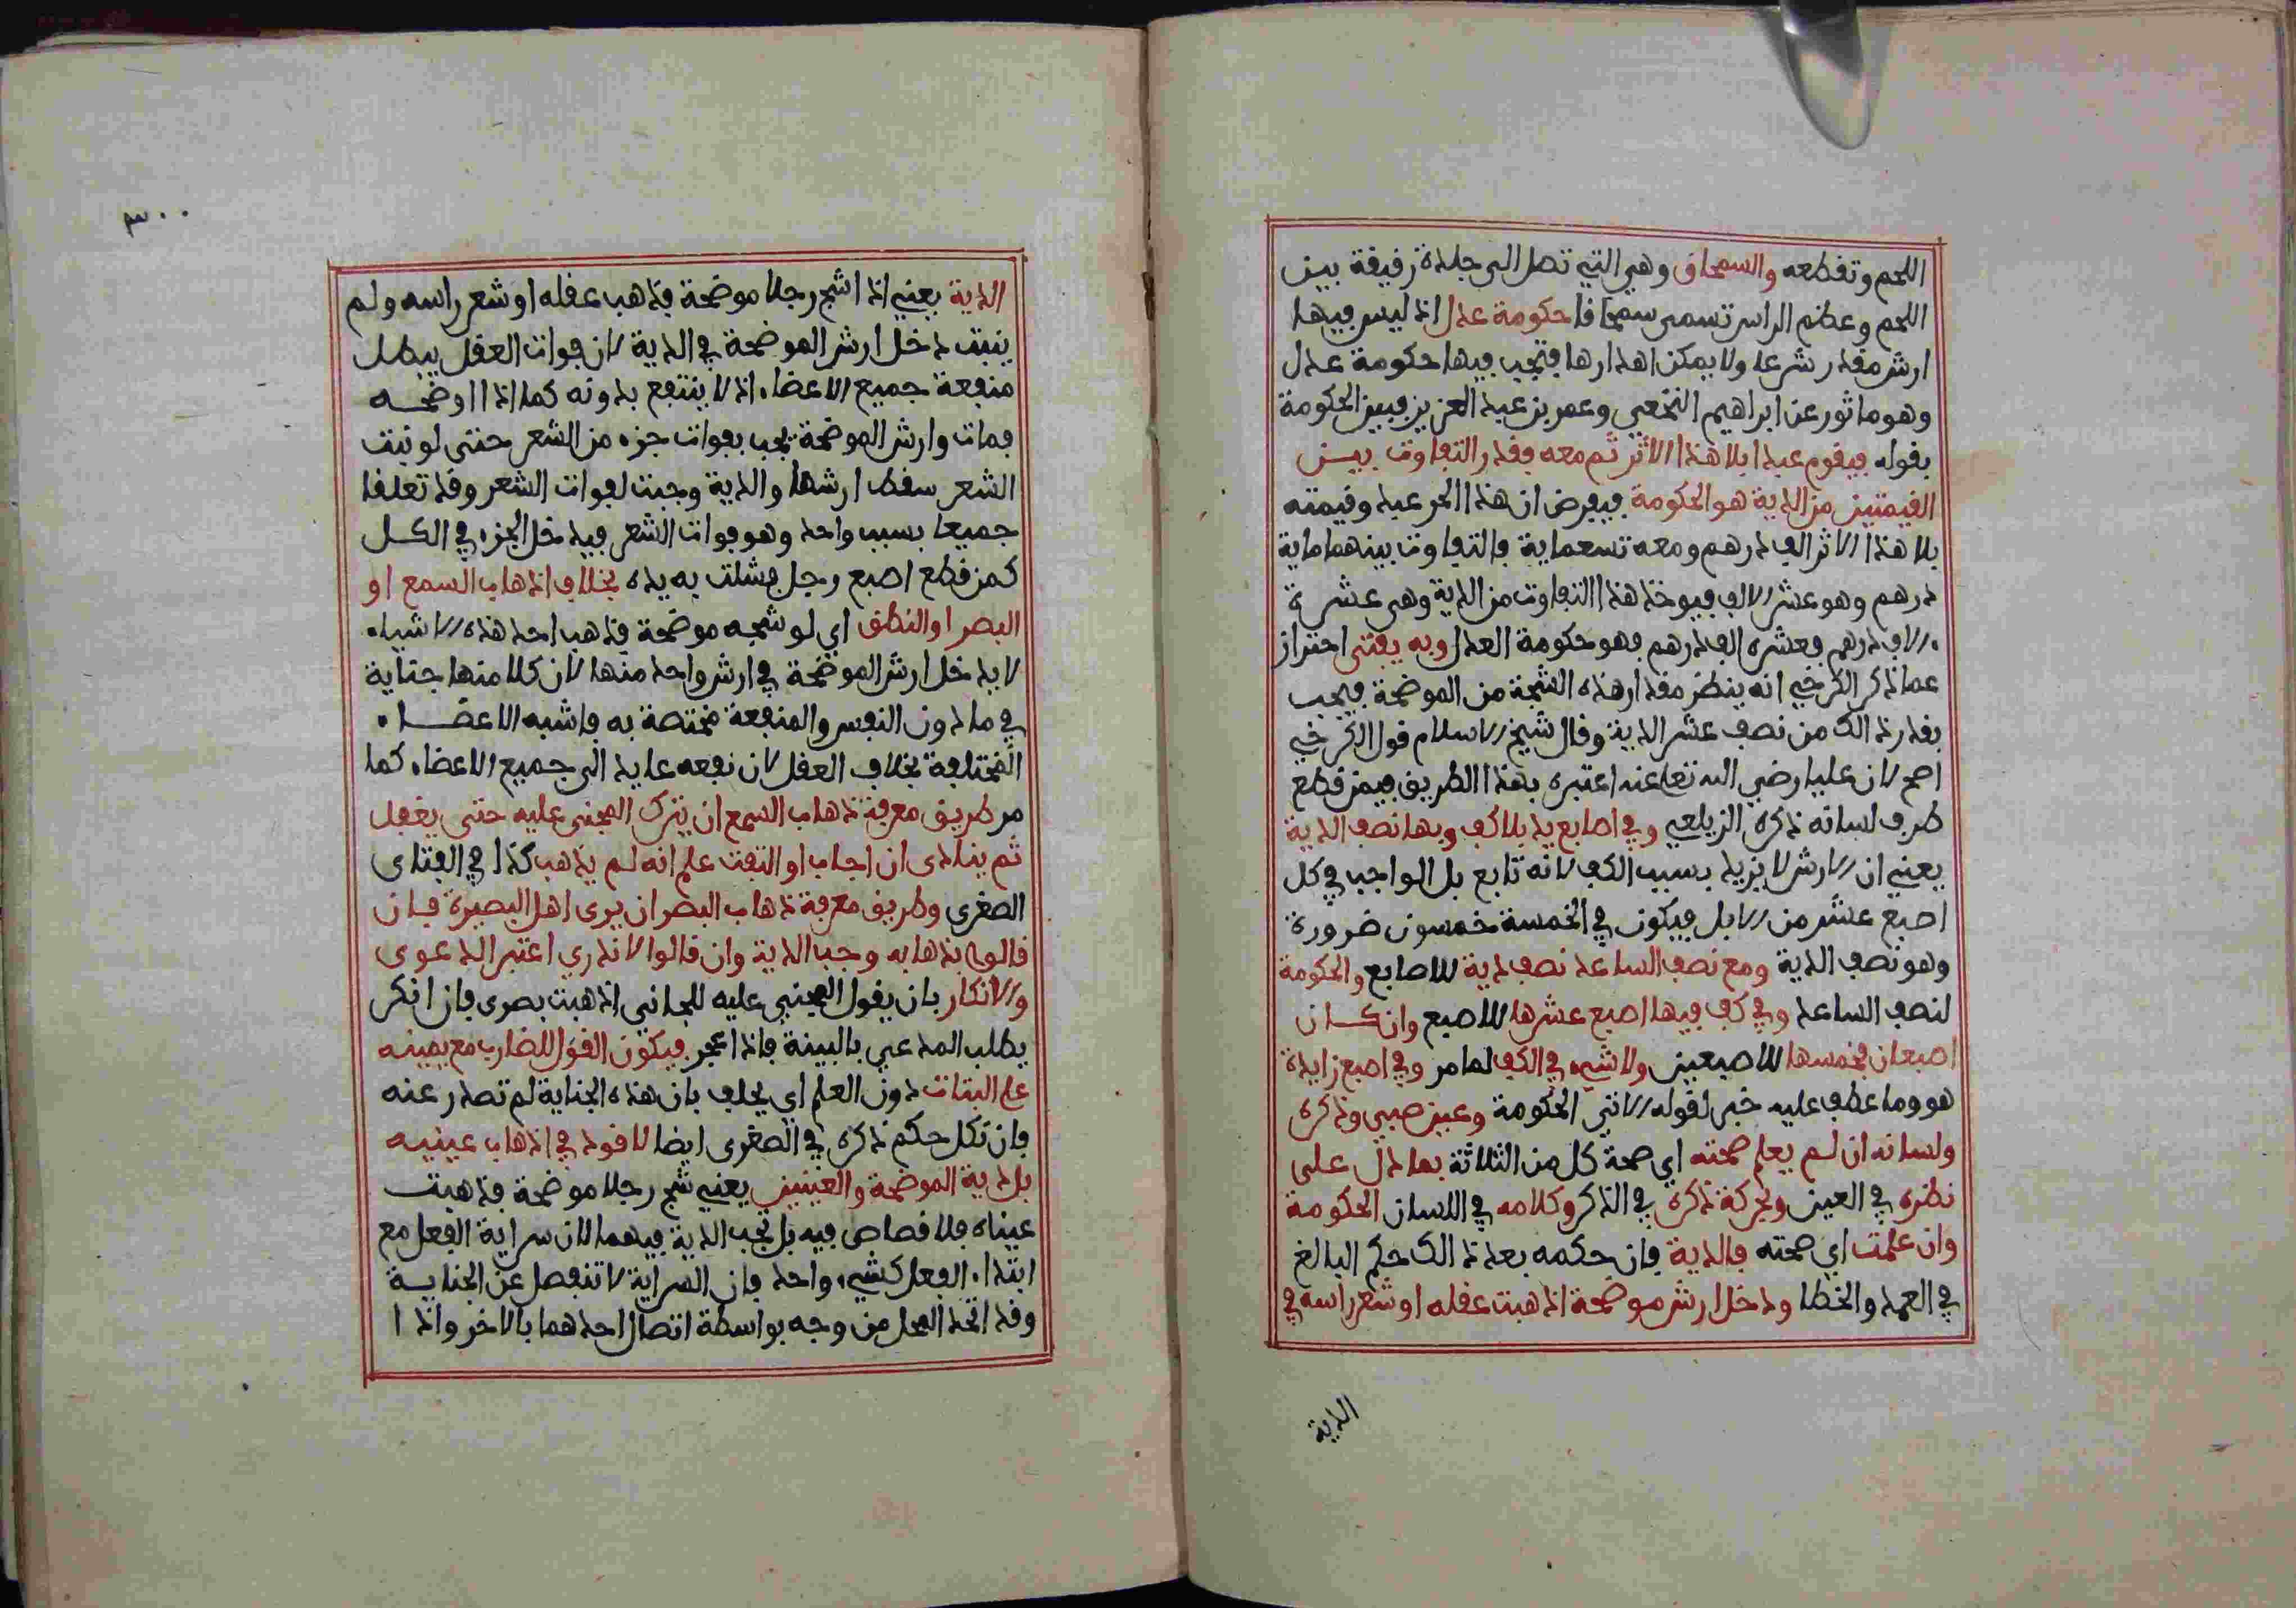 اللحم وتقطعه والسمحاق وهي التي تصل الى جلدة رقيقة بين
اللحم وعظم الراس تسمى سمحاقا حكومة عدل اذ ليس فيها
ارش مقدر شرعا ولا يمكن اهدارها فتجب فيها حكومة عدل
وهو ماثور عن ابراهيم النخعي وعمر بن عبد العزيز فبين الحكومة
بقوله فيقوم عبدا بلا هذا الاثر ثم معه فقدر التفاوت بين
القيمتين من الدية هو الحكومة فيفرض ان هذا الحر عبد وقيمته
بلا هذا الاثر الف درهم ومعه تسعماية فالتفاوت بينهما ماية
درهم وهو عشر الالف فيوخذ هذا التفاوت من الدية وهي عشرة
ءالاف درهم فعشره الف درهم فهو حكومة العدل وبه يفتى احتراز
عما ذكر الكرخي انه ينظر مقدار هذه الشجة من الموضحة فيجب
بقدر ذالك من نصف عشر الدية وقال شيخ الاسلام قول الكرخي
اصح لان عليا رضي الله تعلى عنه اعتبره بهذا الطريق فيمن قطع
طرف لسانه ذكره الزيلعي وفي اصابع يد بلا كف وبها نصف الدية
يعني ان الارش لا يزيد بسبب الكف لانه تابع بل الواجب في كل
اصبع عشر من الابل فيكون في الخمسة خمسون ضرورة
وهو نصف الدية ومع نصف الساعد نصف دية للاصابع والحكومة
لنصف الساعد وفي كف فيها اصبع عشرها للاصبع وان كان
اصبعان فخمسها للاصبعين ولا شيء في الكف لما مر وفي اصبع زايدة
هو وما عطف عليه خبر لقوله الاتي الحكومة وعين صبي وذكره
ولسانه ان لم يعلم صحته اي صحة كل من الثلاثة بما دل على
نظره في العين وبحركة ذكره في الذكر وكلامه في اللسان الحكومة
وان علمت اي صحته فالدية فان حكمه بعد ذالك حكم البالغ
في العمد والخطا ودخل ارش موضحة اذهبت عقله او شعر راسه في
الدية
٣٠٠
الدية يعني اذا شج رجلا موضحة فذهب عقله او شعر راسه ولم
ينبت دخل ارش الموضحة في الدية لان فوات العقل يبطل
منفعة جميع الاعضاء اذ لا ينتفع بدونه كما اذا اوضحه
فمات وارش الموضحة يجب بفوات جزء من الشعر حتى لو نبت
الشعر سقط ارشها والدية وجبت لفوات الشعر وقد تعلقا
جميعا بسبب واحد وهو فوات الشعر فيدخل الجزء في الكل
كمن قطع اصبع رجل فشلت به يده بخلاف اذهاب السمع او
البصر او النطق اي لو شجه موضحة فذهب احد هذه الاشياء
لا يدخل ارش الموضحة في ارش واحد منها لان كلا منها جناية
في ما دون النفس والمنفعة مختصة به فاشبه الاعضاء
المختلفة بخلاف العقل لان نفعه عايد الى جميع الاعضاء كما
مر طريق معرفة ذهاب السمع ان يترك المجنى عليه حتى يغفل
ثم ينادى ان اجاب او التفت علم انه لم يذهب كذا في الفتاى
الصغرى وطريق معرفة ذهاب البصر ان يرى اهل البصيرة فان
قالوا بذهابه وجب الدية وان قالوا لا ندري اعتبر الدعوى
والانكار بان يقول المجني عليه للجاني اذهبت بصرى فان انكر
يطلب المدعي بالبينة فاذا عجز فيكون القول للضارب مع يمينه
على البتات دون العلم اي يحلف بان هذه الجناية لم تصدر عنه
فان نكل حكم ذكره في الصغرى ايضا لا قود في اذهاب عينيه
بل دية الموضحة والعينين يعني شج رجلا موضحة فذهبت
عيناه فلا قصاص فيه بل تجب الدية فيهما لان سراية الفعل مع
ابتداء الفعل كشيء واحد فان السراية لا تنفصل عن الجناية
وقد اتحد المحل من وجه بواسطة اتصال احدهما بالاخر واذا